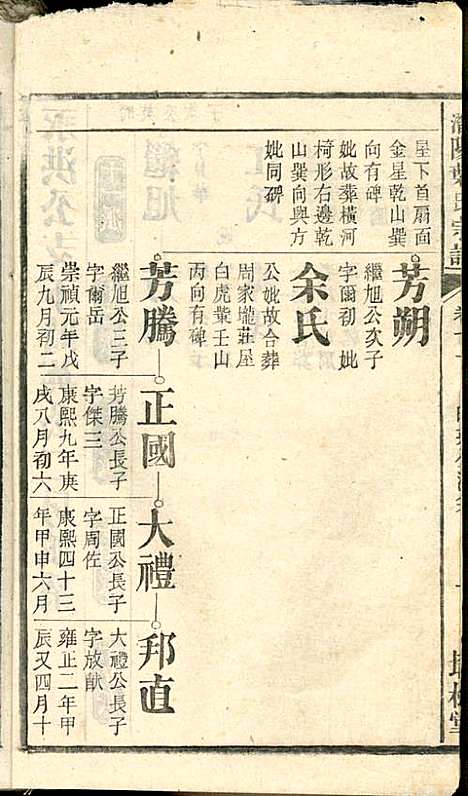 屋下首扇面
金星乾山巽
向有碑
妣故葬橫河
椅形右邊乾
山巽向與方
妣同碑
芳朔
繼旭公次子
字爾初 妣
余氏
公妣故合葬
周家壠莊屋
白虎嘴壬山
丙向有碑
芳騰
繼旭公三子
字爾岳
崇禎元年戊
辰九月初二
正國
芳騰公長子
字傑三
康熙九年庚
戌八月初六
大禮
正國公長子
字周佐
康熙四十三
年甲申六月
邦直
大禮公長子
字放猷
雍正二年甲
辰又四月十